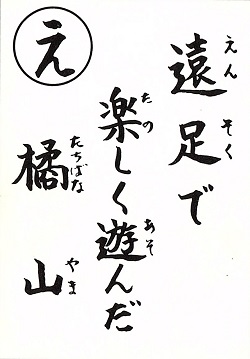 え
遠足で
楽しく遊んだ
橘山
えんそく
たの
あそ
たちばなやま